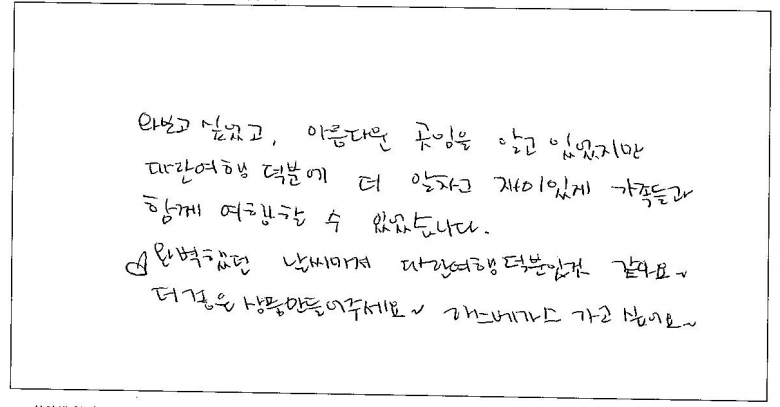 와보고 싶었고, 아름다운 곳임을 알고 있었지만
다란여행 덕분에 더 알차고 재미있게 가족들과
함께 여행할 수 있었습니다.
완벽했던 날씨마저 다란여행덕분인것 같아요~
더 좋은 상품만들어주세요~ 라스베가스 가고 싶어요~